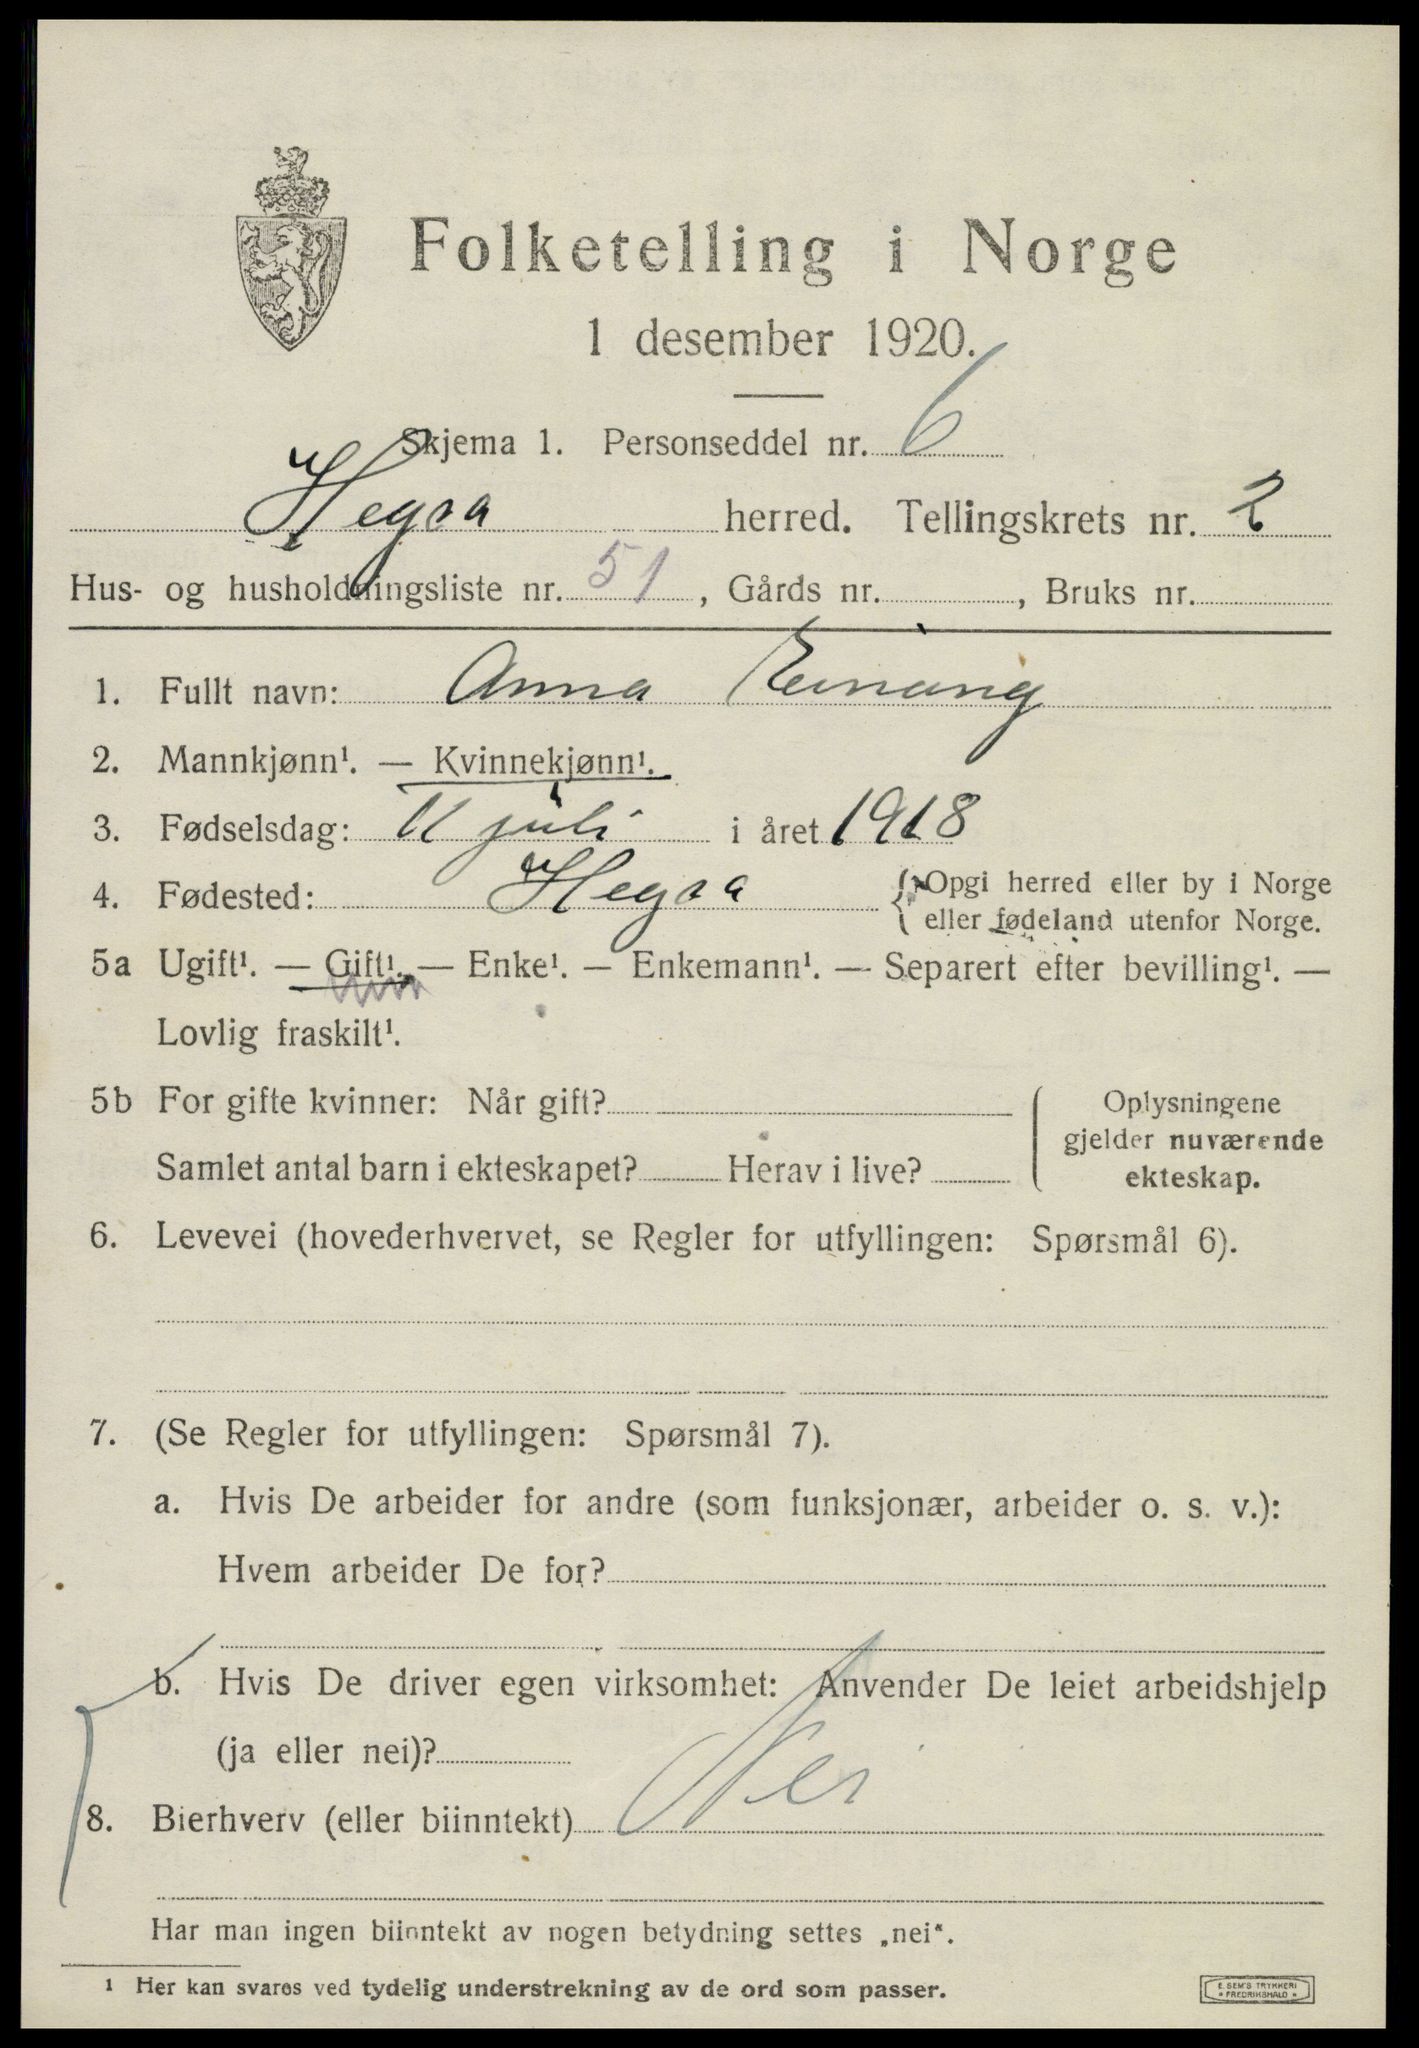 Folketelling i Norge
1 desember 1920.
Skjema 1. Personseddel nr. 6
Hegra herred. Tellingskrets nr. 2
Hus- og husholdningsliste nr. 51, Gårds nr. , Bruks nr.
1. Fullt navn: Anna
2. Mannkjønn¹. — Kvinnekjønn¹.
3. Fødselsdag: 11 juli i året 1918
4. Fødested: Hegra { Opgi herred eller by i Norge
eller fødeland utenfor Norge.
5a Ugift¹. — Gift¹. — Enke¹. — Enkemann¹. — Separert efter bevilling¹. —
Lovlig fraskilt¹.
5b For gifte kvinner: Når gift?
Samlet antal barn i ekteskapet? Herav i live?
Oplysningene
gjelder nuværende
ekteskap.
6. Levevei (hovederhvervet, se Regler for utfyllingen: Spørsmål 6).
7. (Se Regler for utfyllingen: Spørsmål 7).
a. Hvis De arbeider for andre (som funksjonær, arbeider o. s. v.):
Hvem arbeider De for?
b. Hvis De driver egen virksomhet: Anvender De leiet arbeidshjelp
(ja eller nei)?
8. Bierhverv (eller biinntekt) Nei
Har man ingen biinntekt av nogen betydning settes „nei“.
1 Her kan svares ved tydelig understrekning av de ord som passer.
E. SEM'S TRYKKERI
FREDRIKSHALD